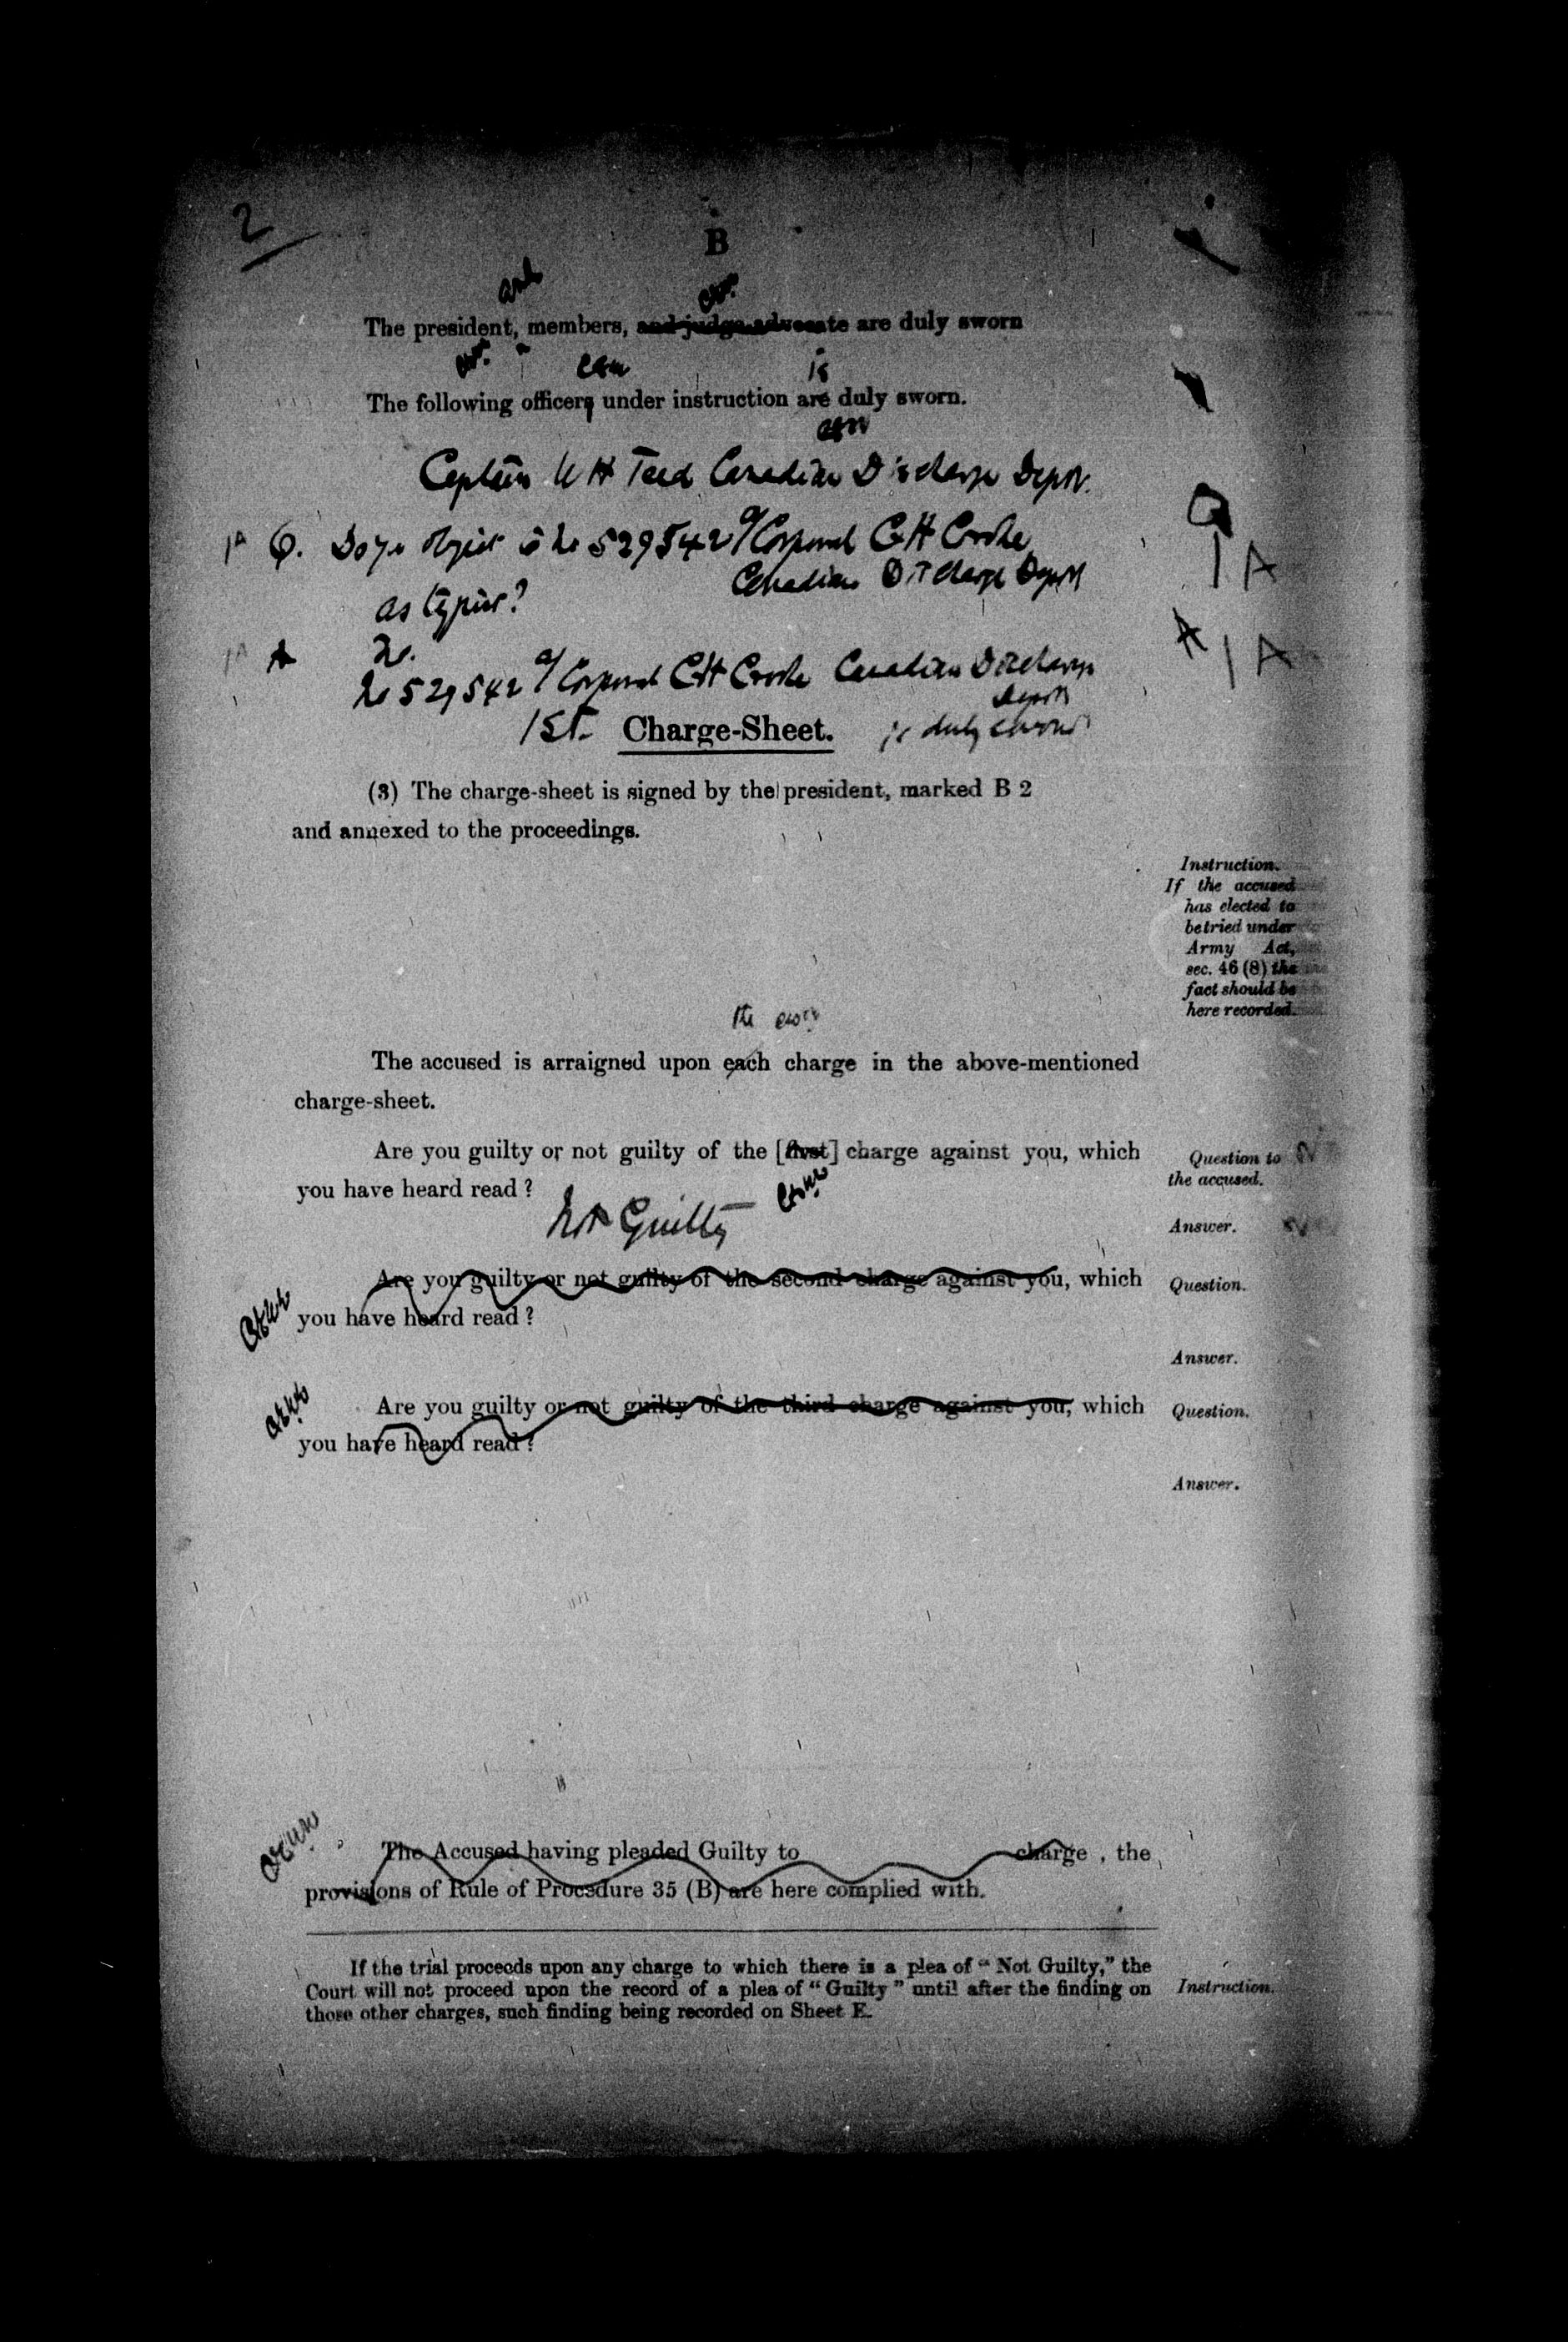 2
B
and
The president, members, and judge advocate are duly sworn
is
The following officers under instruction are duly sworn.
Captain W H Teed Canadian Discharge Depot.
1A Q. Do you object to No 529542 a/Corporal C H Crooke
Canadian Discharge Depot
as typist?
Q 1A
1A A No.
A 1A
No 529542 a/Corporal C H Crooke Canadian Discharge
Depot
is duly sworn
1st. Charge-Sheet.
(3) The charge-sheet is signed by the president, marked B 2
and annexed to the proceedings.
Instruction.
If the accused
has elected to
be tried under
Army Act,
sec. 46 (8) the
fact should be
here recorded.
the
The accused is arraigned upon each charge in the above-mentioned
charge-sheet.
Are you guilty or not guilty of the [first] charge against you, which
you have heard read ?
Question to 2
the accused.
Not Guilty
Answer. 2
Are you guilty or not guilty of the second charge against you, which
you have heard read ?
Question.
Answer.
Are you guilty or not guilty of the third charge against you, which
you have heard read ?
Question.
Answer.
The Accused having pleaded Guilty to charge , the
provisions of Rule of Procedure 35 (B) are here complied with.
If the trial proceeds upon any charge to which there is a plea of “ Not Guilty,” the
Court will not proceed upon the record of a plea of “ Guilty ” until after the finding on
those other charges, such finding being recorded on Sheet E.
Instruction.